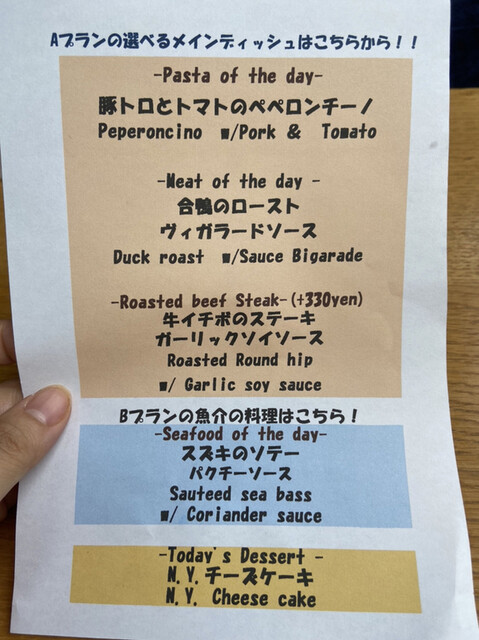 Aプランの選べるメインディッシュはこちらから!!
-Pasta of the day-
豚トロとトマトのペペロンチーノ
Peperoncino w/Pork & Tomato
-Meat of the day -
合鴨のロースト
ヴィガラードソース
Duck roast w/Sauce Bigarade
-Roasted beef Steak-(+330yen)
牛イチボのステーキ
ガーリックソイソース
Roasted Round hip
w/ Garlic soy sauce
Bプランの魚介の料理はこちら!
-Seafood of the day-
スズキのソテー
パクチーソース
Sauteed sea bass
w/ Coriander sauce
-Today's Dessert -
N.Y.チーズケーキ
N.Y. Cheese cake